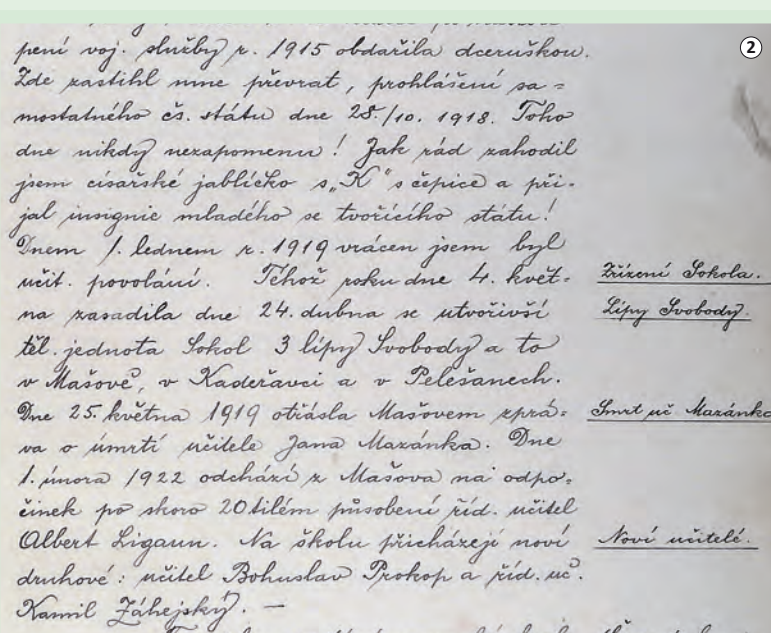 pení voj. služby r. 1915 obdařila dceruškou.
Zde zastihl mne převrat, prohlášení sa=
mostatného čs. státu dne 28./10. 1918. Toho
dne nikdy nezapomenu! Jak rád zahodil
jsem císařské jablíčko s „K“ s čepice a při-
jal insignie mladého se tvořícího státu!
Dnem 1. lednem r. 1919 vrácen jsem byl
učit. povolání. Téhož roku dne 4. květ-
na zasadila dne 24. dubna se utvořivší
těl. jednota Sokol 3 lípy Svobody a to
v Mašově, v Kadeřavci a v Pelešanech.
Dne 25. května 1919 otřásla Mašovem zprá=
va o úmrtí učitele Jana Mazánka. Dne
1. února 1922 odchází z Mašova na odpo-
činek po skoro 20tilém působení říd. učitel
Albert Ligaun. Na školu přicházejí noví
druhové: učitel Bohuslav Prokop a říd. uč.
Kamil Záhejský. —
Zřízení Sokola.
Lípy Svobody.
Smrt uč Mazánka
Noví učitelé.
2